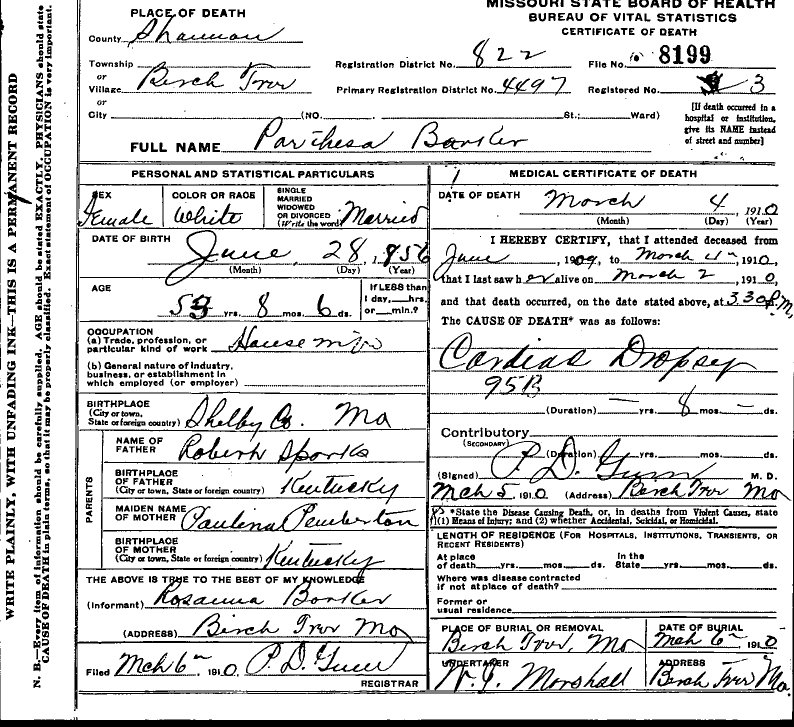 MISSOURI STATE BOARD OF HEALTH
BUREAU OF VITAL STATISTICS
CERTIFICATE OF DEATH
PLACE OF DEATH
County Shannon
Township
or
Village Birch Tree
or
City (NO. St.; Ward)
Registration District No. 822 File No. 8199
Primary Registration District No. 4497 Registered No. 3
[If death occurred in a
hospital or institution,
give its NAME instead
of street and number]
FULL NAME Parthesa Barker
PERSONAL AND STATISTICAL PARTICULARS
SEX
Female
COLOR OR RACE
White
SINGLE
MARRIED
WIDOWED
OR DIVORCED
(Write the word) Married
DATE OF BIRTH
June 28, 1856
(Month) (Day) (Year)
AGE
53 yrs. 8 mos. 6 ds.
If LESS than
1 day, hrs.
or min.?
OCCUPATION
(a) Trade, profession, or
particular kind of work Housewife
(b) General nature of industry,
business, or establishment in
which employed (or employer)
BIRTHPLACE
(City or town,
State or foreign country) Shelby Co. Mo
PARENTS
NAME OF
FATHER Robert Sparks
BIRTHPLACE
OF FATHER
(City or town, State or foreign country) Kentucky
MAIDEN NAME
OF MOTHER Paulina Pemberton
BIRTHPLACE
OF MOTHER
(City or town, State or foreign country) Kentucky
THE ABOVE IS TRUE TO THE BEST OF MY KNOWLEDGE
(Informant) Rosanna Barker
(ADDRESS) Birch Tree Mo
Filed Mch 6th 1910 P.D. Gunn
REGISTRAR
MEDICAL CERTIFICATE OF DEATH
DATE OF DEATH March 4, 1910
(Month) (Day) (Year)
I HEREBY CERTIFY, that I attended deceased from
June, 1909, to March 4th, 1910,
that I last saw her alive on March 2, 1910,
and that death occurred, on the date stated above, at 3.30 P.M,
The CAUSE OF DEATH* was as follows:
Cardiac Dropsy
95B
(Duration) — yrs. 8 mos. — ds.
Contributory
(SECONDARY)
(Duration) yrs. mos. ds.
(Signed) P.D. Gunn M. D.
Mch 5, 1910 (Address) Birch Tree Mo
*State the Disease Causing Death, or, in deaths from Violent Causes, state
(1) Means of Injury; and (2) whether Accidental, Suicidal, or Homicidal.
LENGTH OF RESIDENCE (FOR HOSPITALS, INSTITUTIONS, TRANSIENTS, OR
RECENT RESIDENTS)
At place In the
of death yrs. mos. ds. State yrs. mos. ds.
Where was disease contracted
if not at place of death?
Former or
usual residence
PLACE OF BURIAL OR REMOVAL
Birch Tree, Mo
DATE OF BURIAL
Mch 6th 1910
UNDERTAKER
Marshall
ADDRESS
Birch Tree Mo.
WRITE PLAINLY, WITH UNFADING INK—THIS IS A PERMANENT RECORD
N. B.—Every item of information should be carefully supplied. AGE should be stated EXACTLY. PHYSICIANS should state
CAUSE OF DEATH in plain terms, so that it may be properly classified. Exact statement of OCCUPATION is very important.